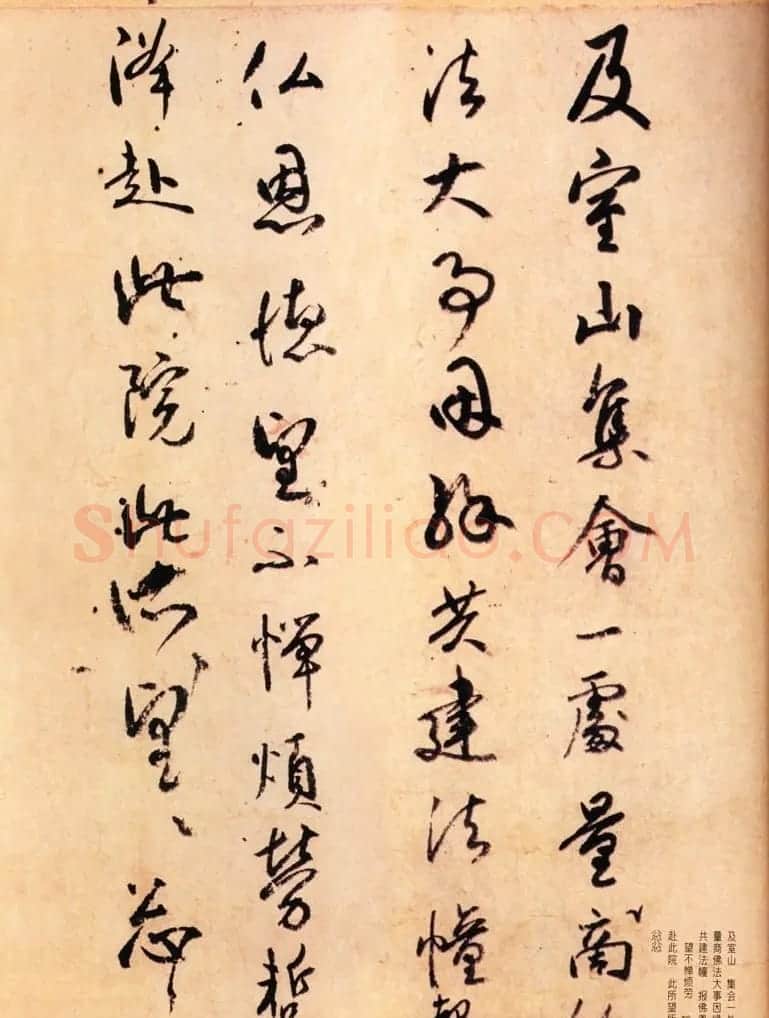 及室山集會一處量商
法大事因縁共建法幢
仏恩徳望不憚煩勞
降赴此院此所望々忩
及室山 集会一
量商佛法大事因
共建法幢 报佛
望不惮烦劳
赴此院 此所望
shufaziliao.COM